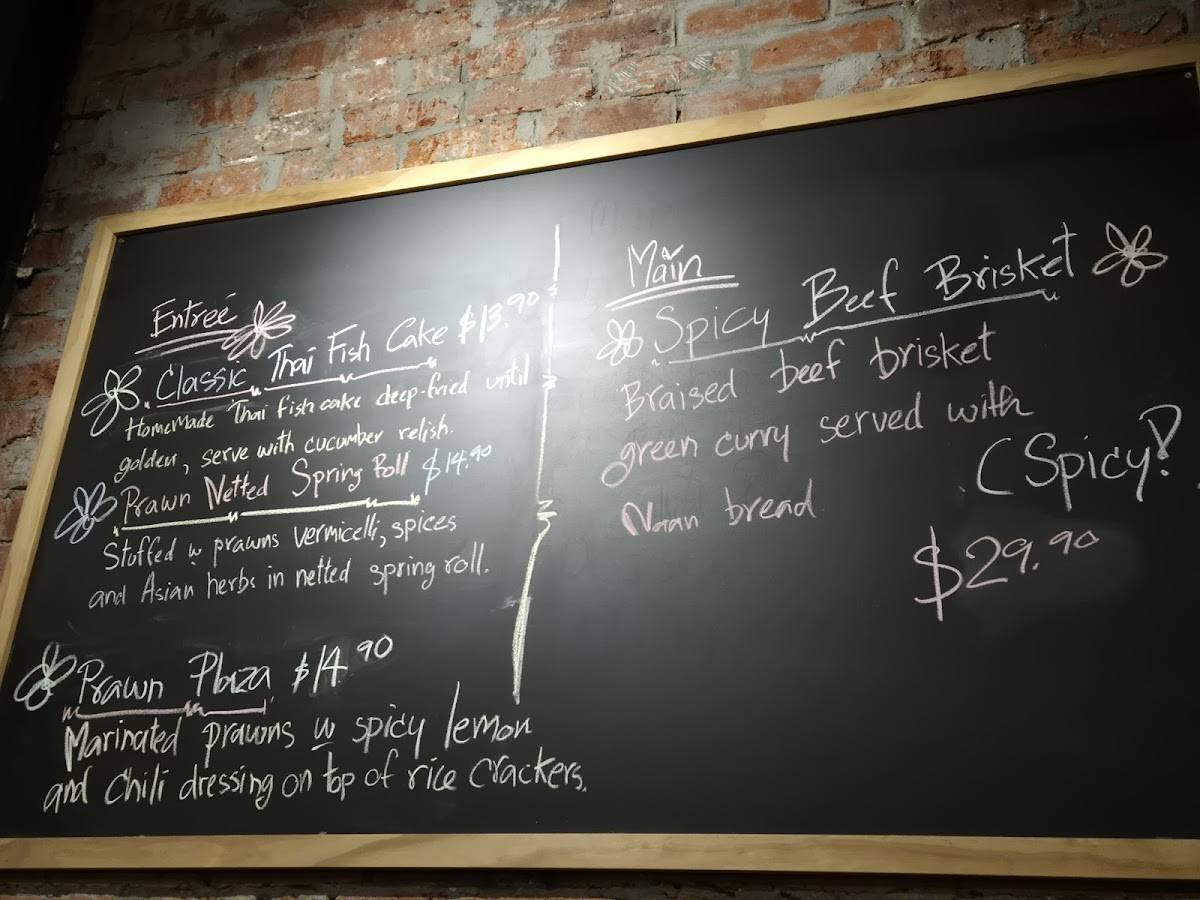 Entreé
Classic Thai Fish Cake $13.90
Homemade Thai fish cake deep-fried until
golden, serve with cucumber relish.
Prawn Netted Spring Roll $14.90
Stuffed w prawns vermicelli, spices
and Asian herbs in netted spring roll.
Prawn Plaza $14.90
Marinated prawns w spicy lemon
and chili dressing on top of rice crackers.
Main
Spicy Beef Brisket
Braised beef brisket
green curry served with
Naan bread
(Spicy!)
$29.90